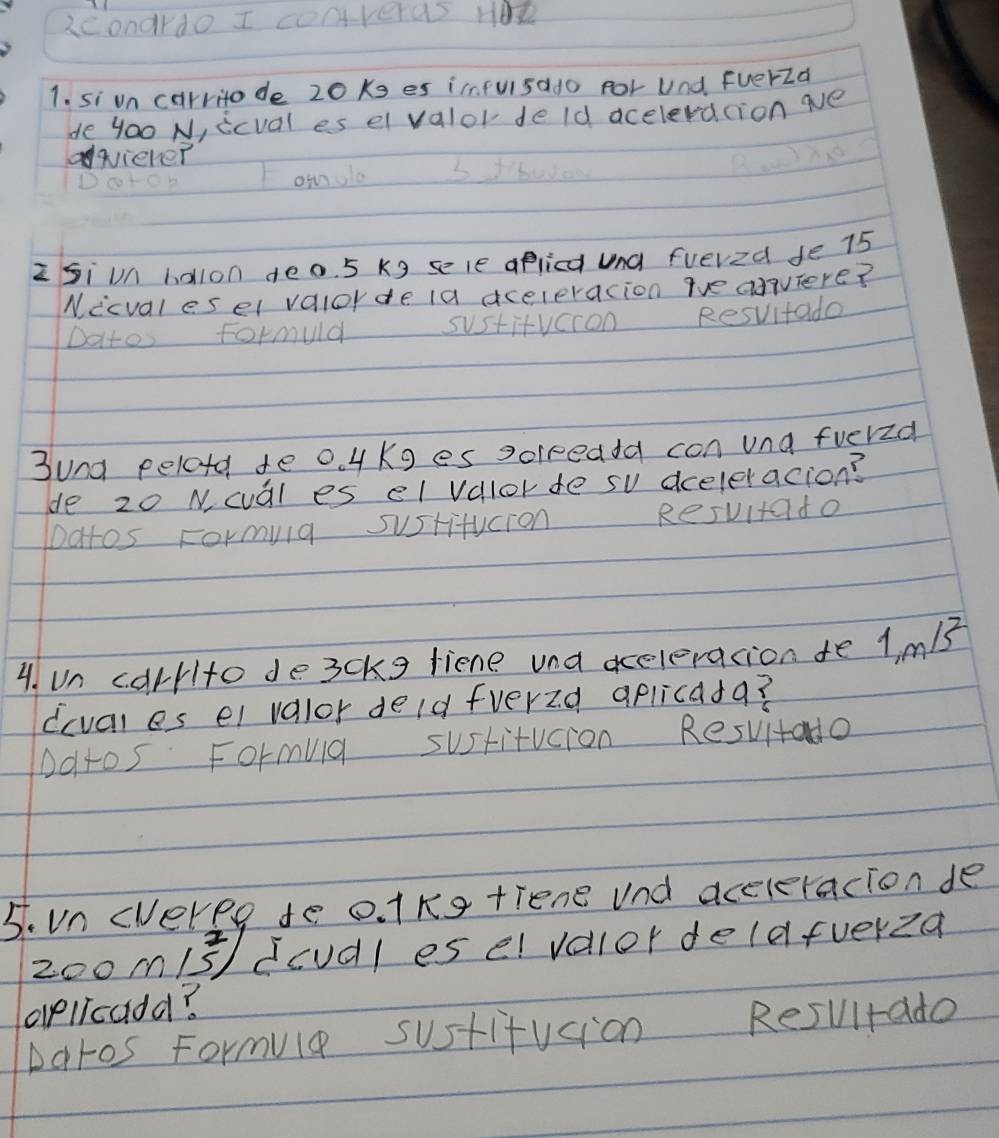 1. si un carrito de 20 Kg es impulsado por una fuerza
de 400 N, ¿cual es el valor de la aceleracion que
adquiere?
Datos Formula
2 si un balon de 0.5 Kg se le aplica una fuerza de 15
N ¿cual es el valor de la aceleracion que adquiere?
Datos Formula sustitucion Resultado
3 una pelota de 0.4 Kg es golpeada con una fuerza
de 20 N, cuál es el valor de su aceleracion?
Datos Formula sustitucion Resultado
4. un carrito de 30kg tiene una aceleracion de 1, m/s²
¿cual es el valor de la fuerza aplicada?
Datos Formula sustitucion Resultado
5. un cuerpo de 0.1 Kg tiene una aceleracion de
200 m/s²) ¿cual es el valor de la fuerza
aplicada?
Datos Formula sustitucion Resultado